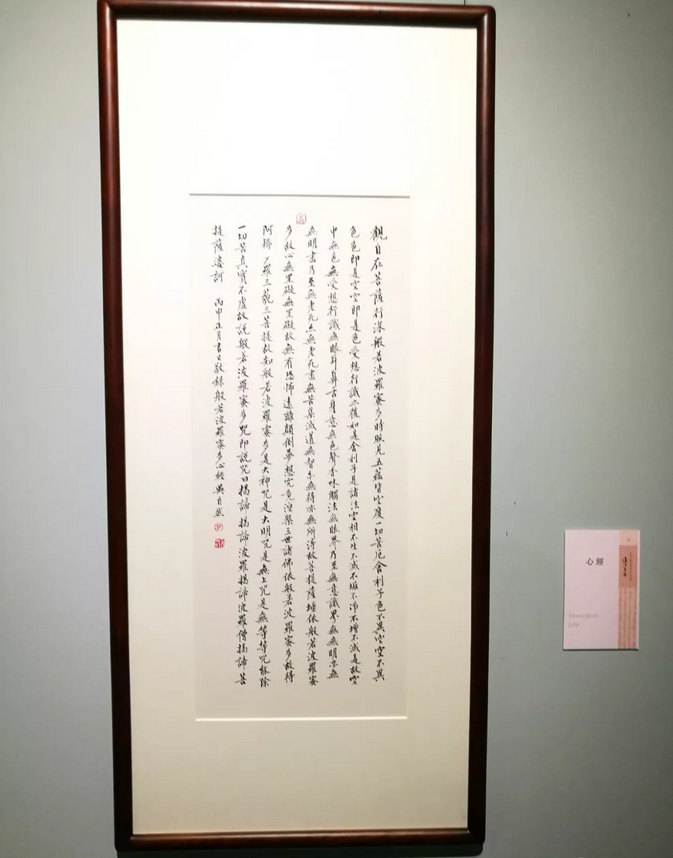 觀自在菩薩行深般若波羅蜜多時照見五蘊皆空度一切苦厄舍利子色不異空空不異
色色即是空空即是色受想行識亦復如是舍利子是諸法空相不生不滅不垢不淨不增不減是故空
中無色無受想行識無眼耳鼻舌身意無色聲香味觸法無眼界乃至無意識界無無明亦無
無明盡乃至無老死亦無老死盡無苦集滅道無智亦無得以無所得故菩提薩埵依般若波羅蜜
多故心無罣礙無罣礙故無有恐怖遠離顛倒夢想究竟涅槃三世諸佛依般若波羅蜜多故得
阿耨多羅三藐三菩提故知般若波羅蜜多是大神咒是大明咒是無上咒是無等等咒能除
一切苦真實不虛故說般若波羅蜜多咒即說咒曰揭諦揭諦波羅揭諦波羅僧揭諦菩
提薩婆訶 丙申正月書日敬錄般若波羅蜜多心經吳自然
心經